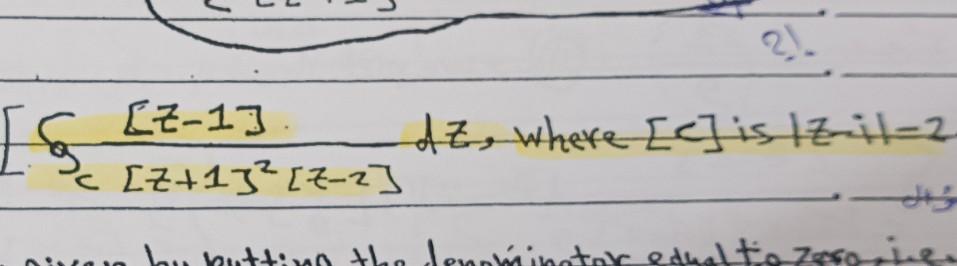 2!.
[∮c [z-1] / [z+1]² [z-2] dz, where [c] is |z-i|=2
given by putting the denominator equal to zero, i.e.